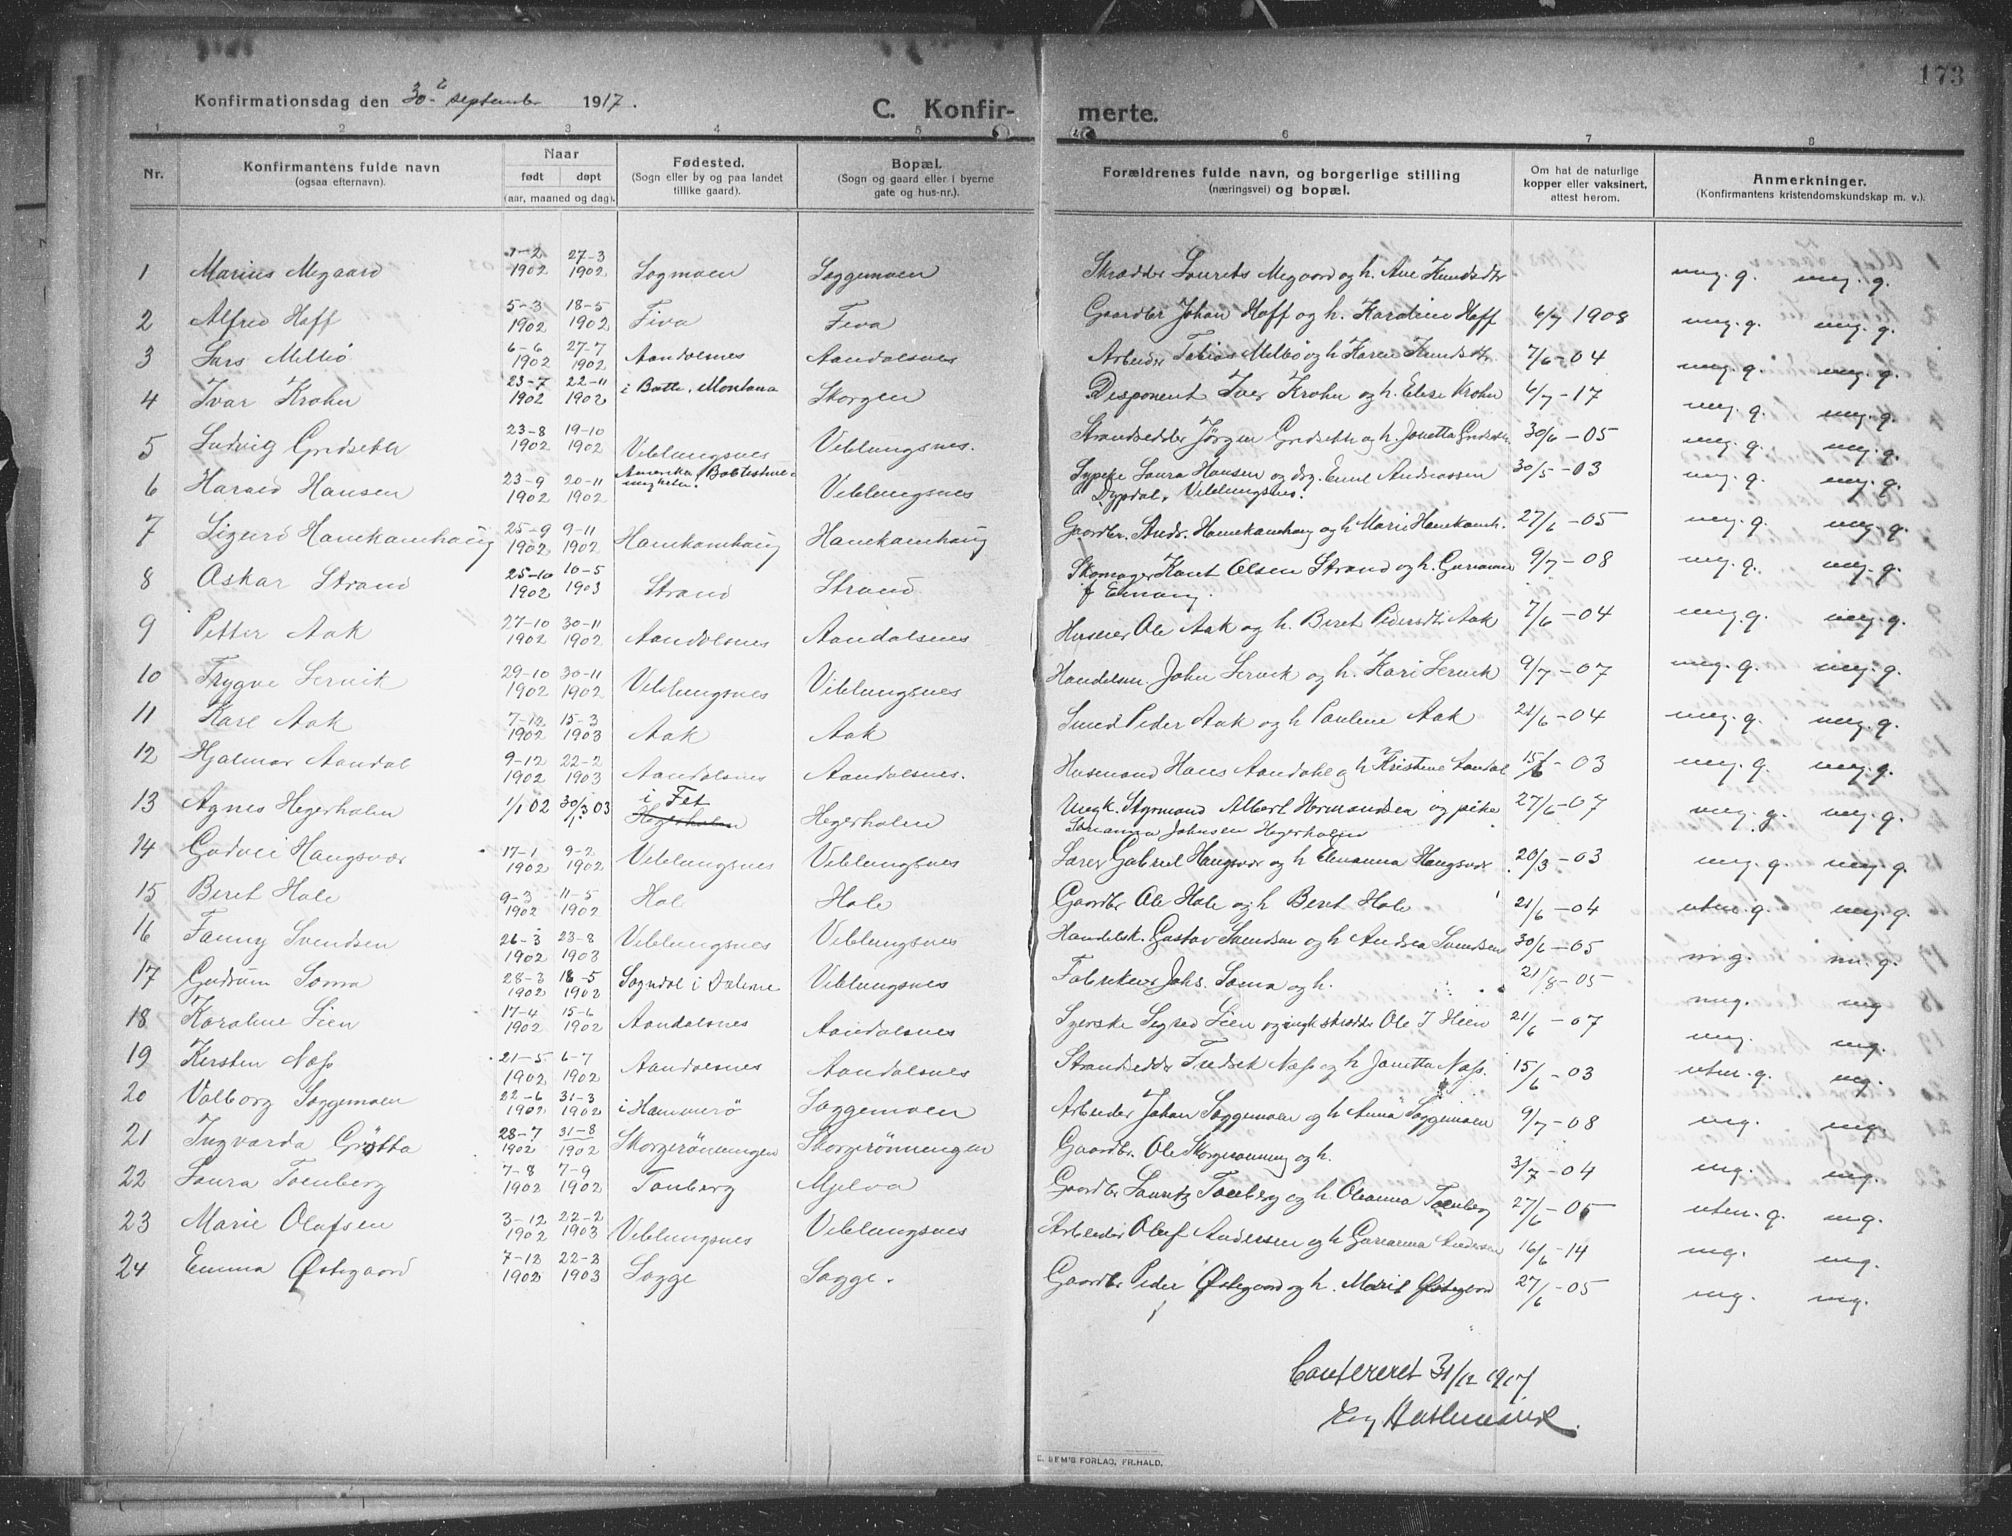 173
Konfirmationsdag den 30te september 1917.
C. Konfirmerte.
1 2 3 4 5 6 7 8
Nr.
Konfirmantens fulde navn
(ogsaa efternavn).
Naar
født døpt
(aar, maaned og dag).
Fødested.
(Sogn eller by og paa landet
tillike gaard).
Bopæl.
(Sogn og gaard eller i byerne
gate og hus-nr.).
Forældrenes fulde navn, og borgerlige stilling
(næringsvei) og bopæl.
Om hat de naturlige
kopper eller vaksinert,
attest herom.
Anmerkninger.
(Konfirmantens kristendomskundskap m. v.).
1 Marius Megaard 7-2 1902 27-3 1902 Sogmoen Soggemoen Skrædder Laurits Megaard og h. Ane Knudsdtr mg. g. mg. g.
2 Alfred Hoff 5-3 1902 18-5 1902 Fiva Fiva Gaardbr Johan Hoff og h. Karoline Hoff 6/7 1908 mg. g. mg. g.
3 Lars Melbö 6-6 1902 27-7 1902 Aandalsnes Aandalsnes Arbeider Tobias Melbö og h Karen Knudsdtr 7/6-04 mg. g. mg. g.
4 Ivar Krohn 23-7 1902 22-11 1902 i Butte, Montana Skorgen Disponent Iver Krohn og h. Elise Krohn 6/7-17 mg. g. mg. g.
5 Ludvig Gridseth 23-8 1902 19-10 1902 Veblungsnes Veblungsnes. Strandsidder Jörgen Gridseth og h. Jonetta Gridseth 30/6-05 mg. g. mg. g.
6 Harald Hansen 23-9 1902 20-11 1902 Amerika, Veblungsnes Sypike Laura Hansen og drg. Emil Andreassen 30/5-03 mg. g. mg. g.
Dypdal, Veblungsnes.
7 Sigurd Hanekamhaug 25-9 1902 9-11 1902 Hanekamhaug Hanekamhaug Gaardbr. Andr. Hanekamhaug og h Marie Hanekamh. 27/6-05 mg. g. mg. g.
8 Oskar Strand 25-10 1902 10-5 1903 Strand Strand Skomager Knut Olsen Strand og h. Gurianna 9/7-08 mg. g. mg. g.
9 Petter Aak 27-10 1902 30-11 1902 Aandalsnes Aandalsnes Huseier Ole Aak og h. Beret Pedersdtr Aak 7/6-04 mg. g. mg. g.
10 Trygve Servik 29-10 1902 30-11 1902 Veblungsnes Veblungsnes Handelsm. John Servik og h. Kari Servik 9/7-07 mg. g. mg. g.
11 Karl Aak 7-12 1902 15-3 1903 Aak Aak Smed Peder Aak og h Pauline Aak 21/6-04 mg. g. mg. g.
12 Hjalmar Aandal 9-12 1902 22-2 1903 Aandalsnes Aandalsnes. Husmand Hans Aandahl og h Kristine Aandal 15/6-03 mg. g. mg. g.
13 Agnes Hegerholm 1/1 02 30/3 03 i Fet Hegerholm Hegerholm Ungk. Styrmand Albert Hermandsen og pike 27/6-07 mg. g. mg. g.
Johanna Johnsen Hegerholm
14 Gudvei Haugsvær 17-1 1902 9-2 1902 Veblungsnes Veblungsnes Lærer Gabriel Haugsvær og h Elenanna Haugsvær 20/3-03 mg. g. mg. g.
15 Beret Hole 9-3 1902 11-5 1902 Hol Hole Gaardbr Ole Hole og h Beret Hole 21/6-04 uten. g. mg. g.
16 Fanny Svendsen 26-3 1902 23-8 1903 Veblungsnes Veblungsnes Handelsk. Gustav Svendsen og h Andrea Svendsen 30/6-05 m. g. m. g.
17 Gudrun Soma 28-3 1902 18-5 1902 Sogndal i Dalerne Veblungsnes Fabrikeier Johs. Soma og h. 21/8-05 mg. mg
18 Karoline Lien 17-4 1902 15-6 1902 Aandalsnes Aandalsnes Syerske Sigrid Lien og ungk skrædder Ole J Hlen 21/6-07 mg. mg.
19 Kirsten Næss 21-5 1902 6-7 1902 Aandalsnes Aandalsnes Strandsidder Fredrik Næss og h Jonetta Næss. 15/6-03 uten. g. mg.
20 Valborg Soggemoen 22-6 1902 31-3 1902 i Hammerö Soggemoen Arbeider Johan Soggemoen og h Anna Soggemoen 9/7-08 mg. mg.
21 Ingvarda Grötta 28-7 1902 31-8 1902 Skorgerönningen Skorgerönningen Gaardbr. Ole Skorgerönning og h. 3/7-04 mg. mg.
22 Laura Tomberg 7-8 1902 7-9 1902 Tomberg Mjelva Gaardbr Lauritz Tomberg og h. Oleanna Tomberg 27/6-05 uten. g. mg.
23 Marie Olafsen 3-12 1902 22-2 1903 Veblungsnes Veblungsnes Arbeider Oluf Andersen og h Gurianna Andersen 16/6-14 mg. mg.
24 Emma Østegaard 7-12 1902 22-2 1903 Sogge Sogge. Gaardbr Peder Østegaard og h. Marit Østegaard 27/6-05 mg. mg.
Confereret 31/12 1917
E. SEM'S FORLAG, FR.HALD.